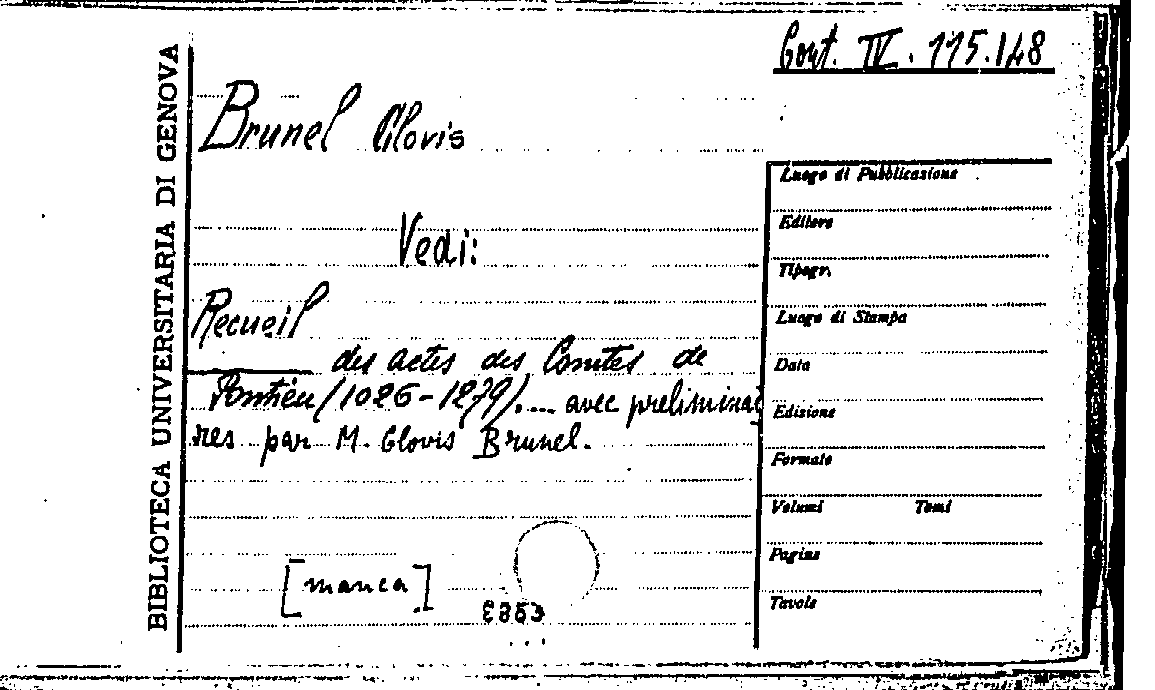 Cont. IV. 115.148
BIBLIOTECA UNIVERSITARIA DI GENOVA
Brunel Clovis
Vedi:
Recueil
des actes des Comtes de
Pontieu (1026-1279).... avec preliminai
res par M. Clovis Brunel.
[manca]
Luogo di Pubblicazione
Editore
Tipogr.
Luogo di Stampa
Data
Edizione
Formato
Volumi Tomi
Pagine
Tavole